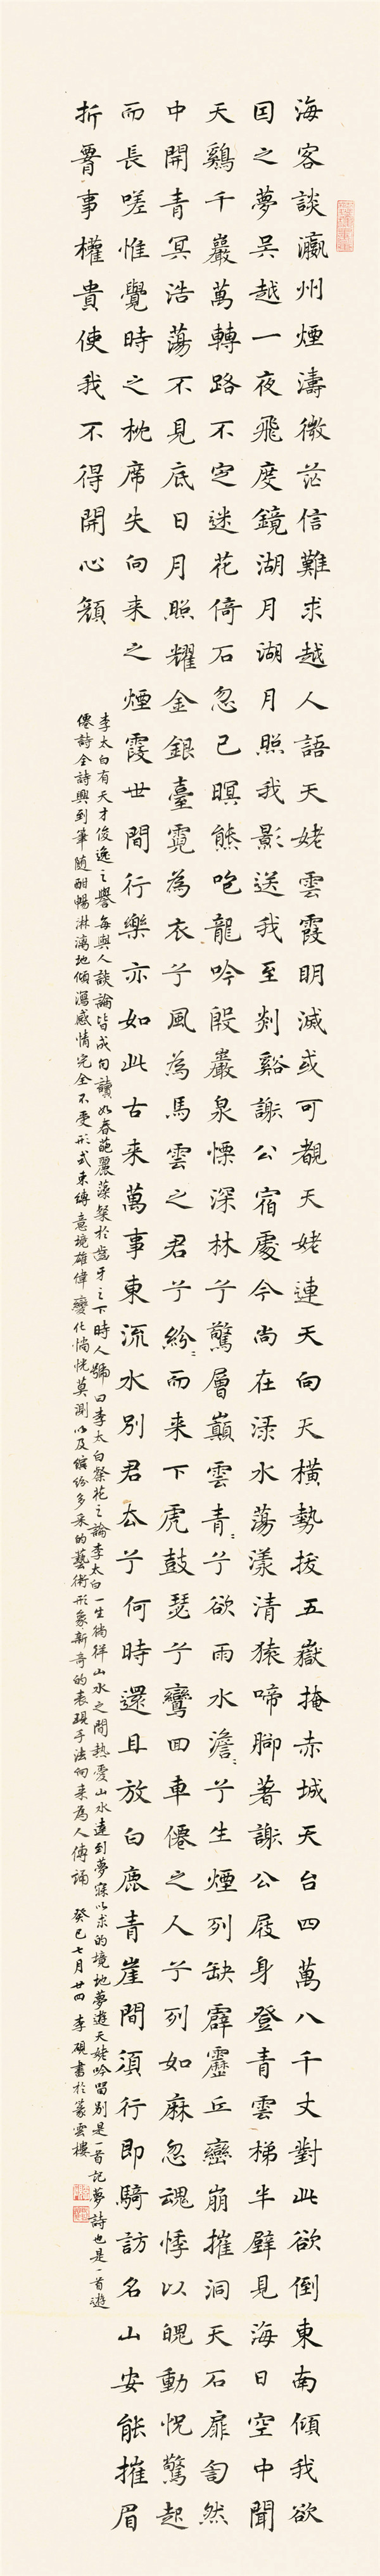 海客談瀛州煙濤微茫信難求越人語天姥雲霞明滅或可覩天姥連天向天橫勢拔五嶽掩赤城天台四萬八千丈對此欲倒東南傾我欲
因之夢吳越一夜飛度鏡湖月湖月照我影送我至剡谿謝公宿處今尚在淥水蕩漾清猿啼腳著謝公屐身登青雲梯半壁見海日空中聞
天鷄千巖萬轉路不定迷花倚石忽已暝熊咆龍吟殷巖泉慄深林兮驚層巔雲青〻兮欲雨水澹〻兮生煙列缺霹靂丘巒崩摧洞天石扉訇然
中開青冥浩蕩不見底日月照耀金銀臺霓為衣兮風為馬雲之君兮紛〻而来下虎鼓瑟兮鸞回車僊之人兮列如麻忽魂悸以魄動怳驚起
而長嗟惟覺時之枕席失向来之煙霞世間行樂亦如此古来萬事東流水別君去兮何時還且放白鹿青崖間須行即騎訪名山安能摧眉
折𧝓事權貴使我不得開心顏
李太白有天才俊逸之譽每與人談論皆成句讀如春葩麗藻粲於齒牙之下時人號曰李太白粲花之論李太白一生徜徉山水之間熱愛山水達到夢寐以求的境地夢遊天姥吟留別是一首記夢詩也是一首遊
僊詩全詩興到筆隨酣暢淋漓地傾瀉感情完全不受形式束縛意境雄偉變化惝恍莫測以及繽紛多采的藝術形象新奇的表現手法向来為人傳誦 癸巳七月廿四 李硯書於篆雲樓